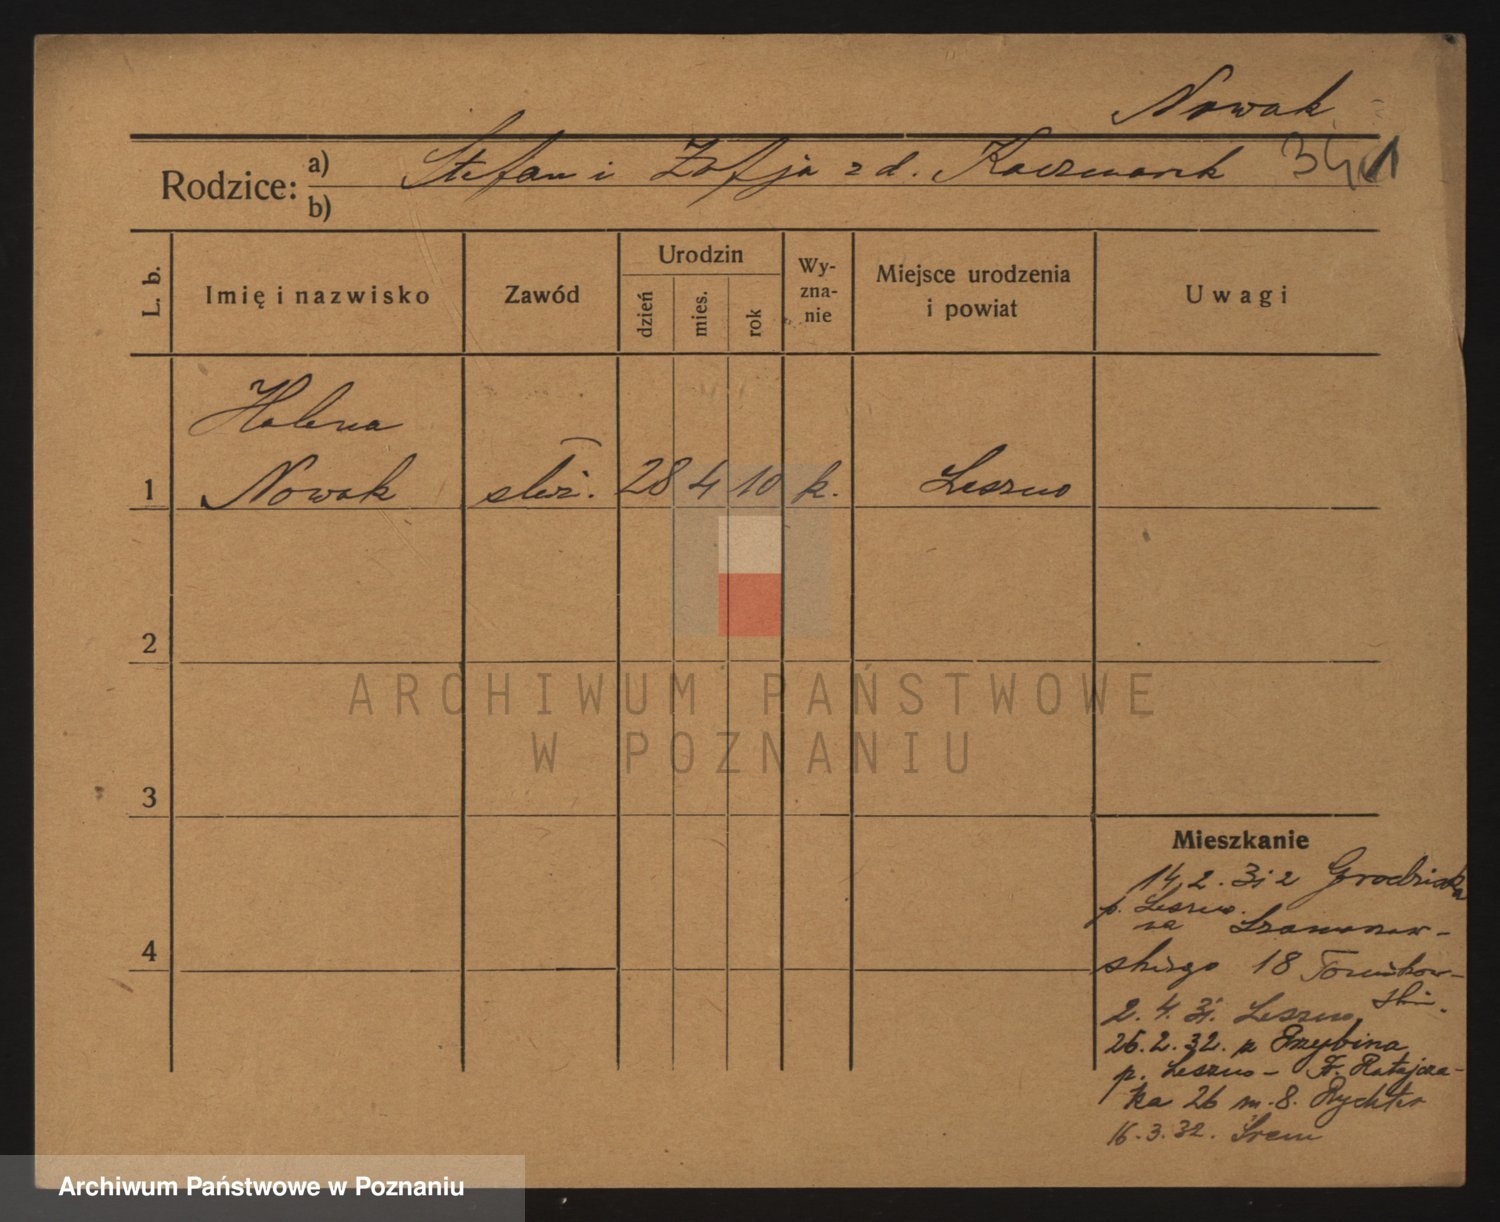 Nowak
Rodzice: a) Stefan i Zofja z d. Kaczmarek
b)
L. b.
Imię i nazwisko
Zawód
Urodzin
dzień
mies.
rok
Wy-
zna-
nie
Miejsce urodzenia
i powiat
Uwagi
Helena
1 Nowak służ. 28 4 10 k. Leszno
2
3
4
Mieszkanie
14.2.31 z Grodziska
p. Leszno.
na Szamarzew-
skiego 18
2.4.31. Leszno
26.2.32. z Przybina
p. Leszno - Fr. Ratajcza-
ka 26 m. 8. Rychter
16.3.32. Śrem
ARCHIWUM PAŃSTWOWE
W POZNANIU
Archiwum Państwowe w Poznaniu